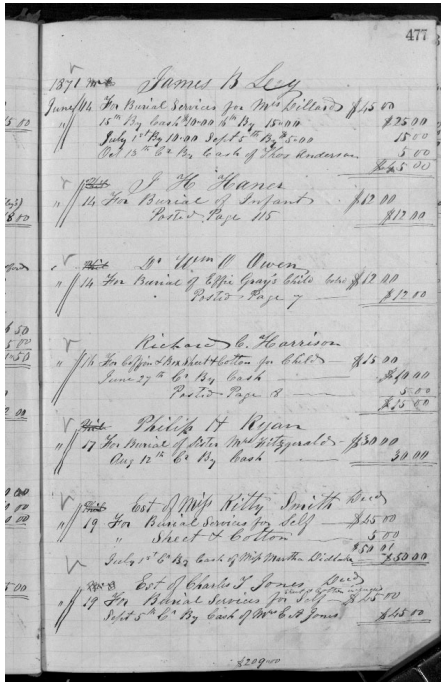 477
1871 James B Ley
June 14 For Burial Services for Mrs Dillard $45 00
" 15th By Cash $10.00 16th By 15.00 $25 00
July 1st By 10.00 Sept 5th By $5.00 15 00
Oct 13th Cr By Cash of Thos Anderson 5 00
$45 00
J H Haner
" 14 For Burial of Infant $12 00
Posted Page 115 $12 00
Wm O Owen
" 14 For Burial of Effie Gray's Child $12 00
" Posted Page 7 $12 00
Richard C. Harrison
" 14 For Coffin & Box Sheet & Cotton for Child $15 00
June 27th Cr By Cash $10 00
Posted Page 8 5 00
$15 00
Philip H Ryan
" 17 For Burial of Sister Mrs Fitzgerald $30 00
Aug 12th Cr By Cash 30 00
Est of Miss Kitty Smith Decd
" 19 For Burial Services for Self $45 00
" Sheet & Cotton 5 00
$50 00
July 1st Cr By Cash of Miss Martha $50 00
Est of Charles T Jones Decd
" 19 For Burial Services for Self $45 00
Sept 5th Cr By Cash of Mrs E A Jones $45 00
$209.00